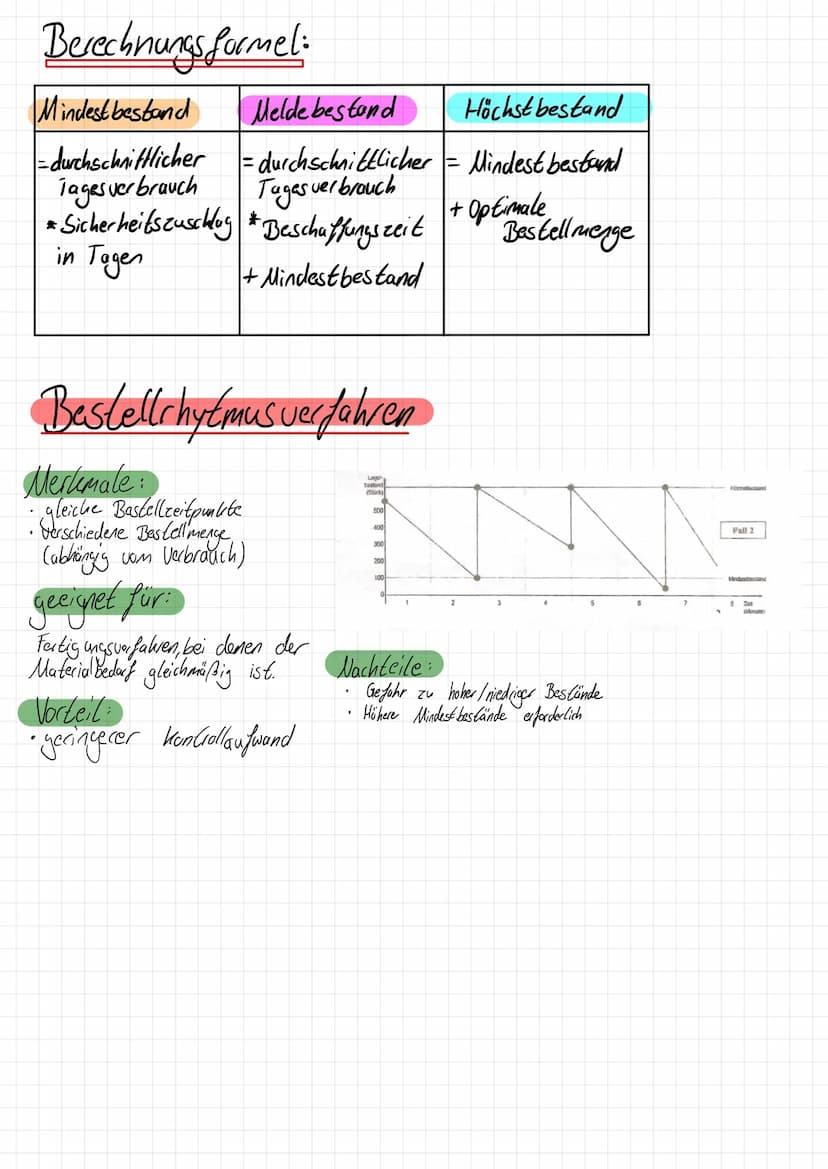 Berechnungsformel:
Mindestbestand
= durchschnittlicher
Tagesverbrauch
* Sicherheitszuschlag
in Tagen
Meldebestand
= durchschnittlicher
Tagesverbrauch
* Beschaffungszeit
+ Mindestbestand
Höchstbestand
= Mindestbestand
+ Optimale
Bestellmenge
Bestellrhytmusverfahren
Merkmale:
· gleiche Bastellzeitpunkte
· Verschiedene Bestellmenge
(abhängig vom Verbrauch)
geeignet für:
Fertigungsverfahren, bei denen der
Materialbedarf gleichmäßig ist.
Vorteil:
· geringerer Kontrollaufwand
Lager-
bestand
(Stück)
500
400
300
200
100
0
1 2 3 4 5 6 7 8 Zeit
Höchstbestand
Fall 2
Mindestbestand
Nachteile:
· Gefahr zu hoher/niedriger Bestände
· Höhere Mindestbestände erforderlich